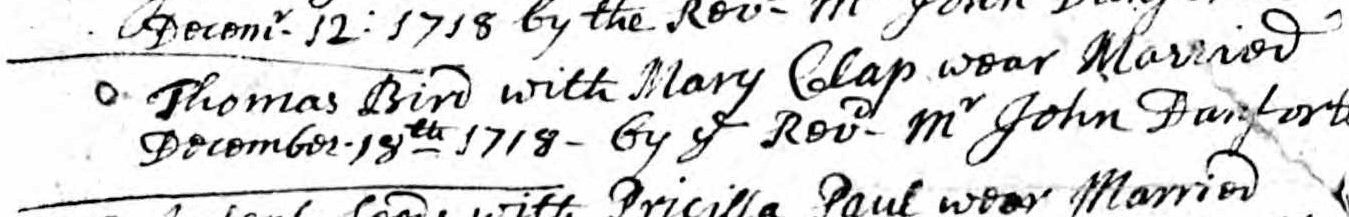 Decemr. 12: 1718 by the Revd. Mr John
Thomas Bird with Mary Clap wear Married
December. 18th 1718 - by ye Revd. Mr John Danforth
with Pricilla Paul wear Married